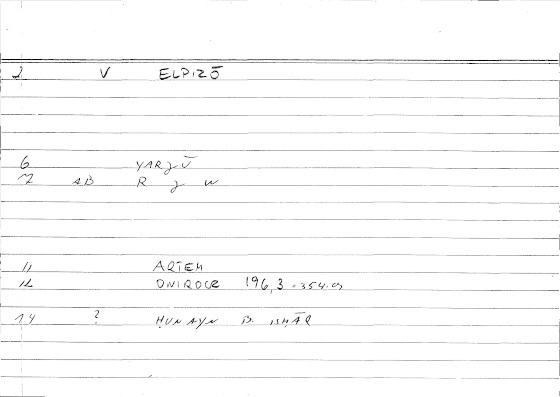 2 V ELPIZŌ
6 YARJŪ
7 AB R J W
11 ARTEM
12 ONIROCR 196,3 - 354.09
14 ? ḤUNAYN B. ISḤĀQ